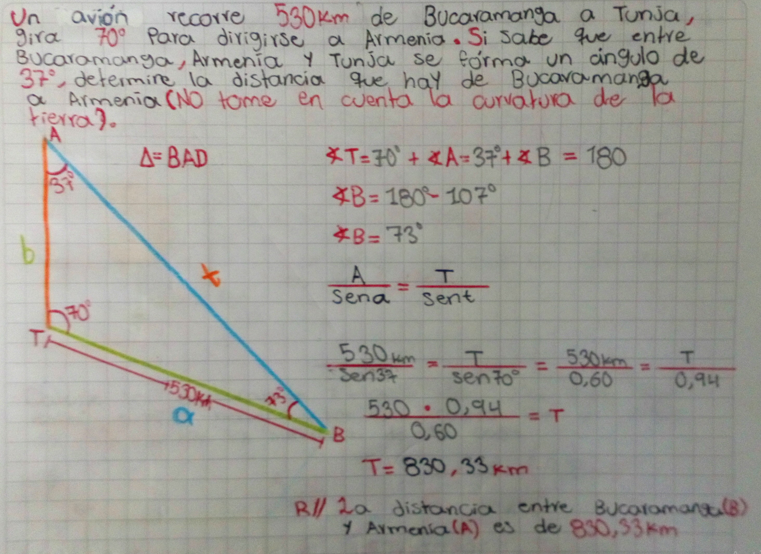 Un avión recorre 530Km de Bucaramanga a Tunja,
gira 70° Para dirigirse a Armenia. Si sabe que entre
Bucaramanga, Armenia y Tunja se forma un ángulo de
37°, determine la distancia que hay de Bucaramanga
a Armenia (NO tome en cuenta la curvatura de la
tierra).
A
37°
b
t
70°
T
530Km
a
73°
B
Δ=BAD
∡T=70°+∡A=37°+∡B = 180
∡B=180°-107°
∡B=73°
A/Sena = T/sent
530km/Sen37 = T/sen70° = 530km/0,60 = T/0,94
530 · 0,94/0,60 = T
T= 830,33 km
R// La distancia entre Bucaramanga(B)
y Armenia(A) es de 830,33km